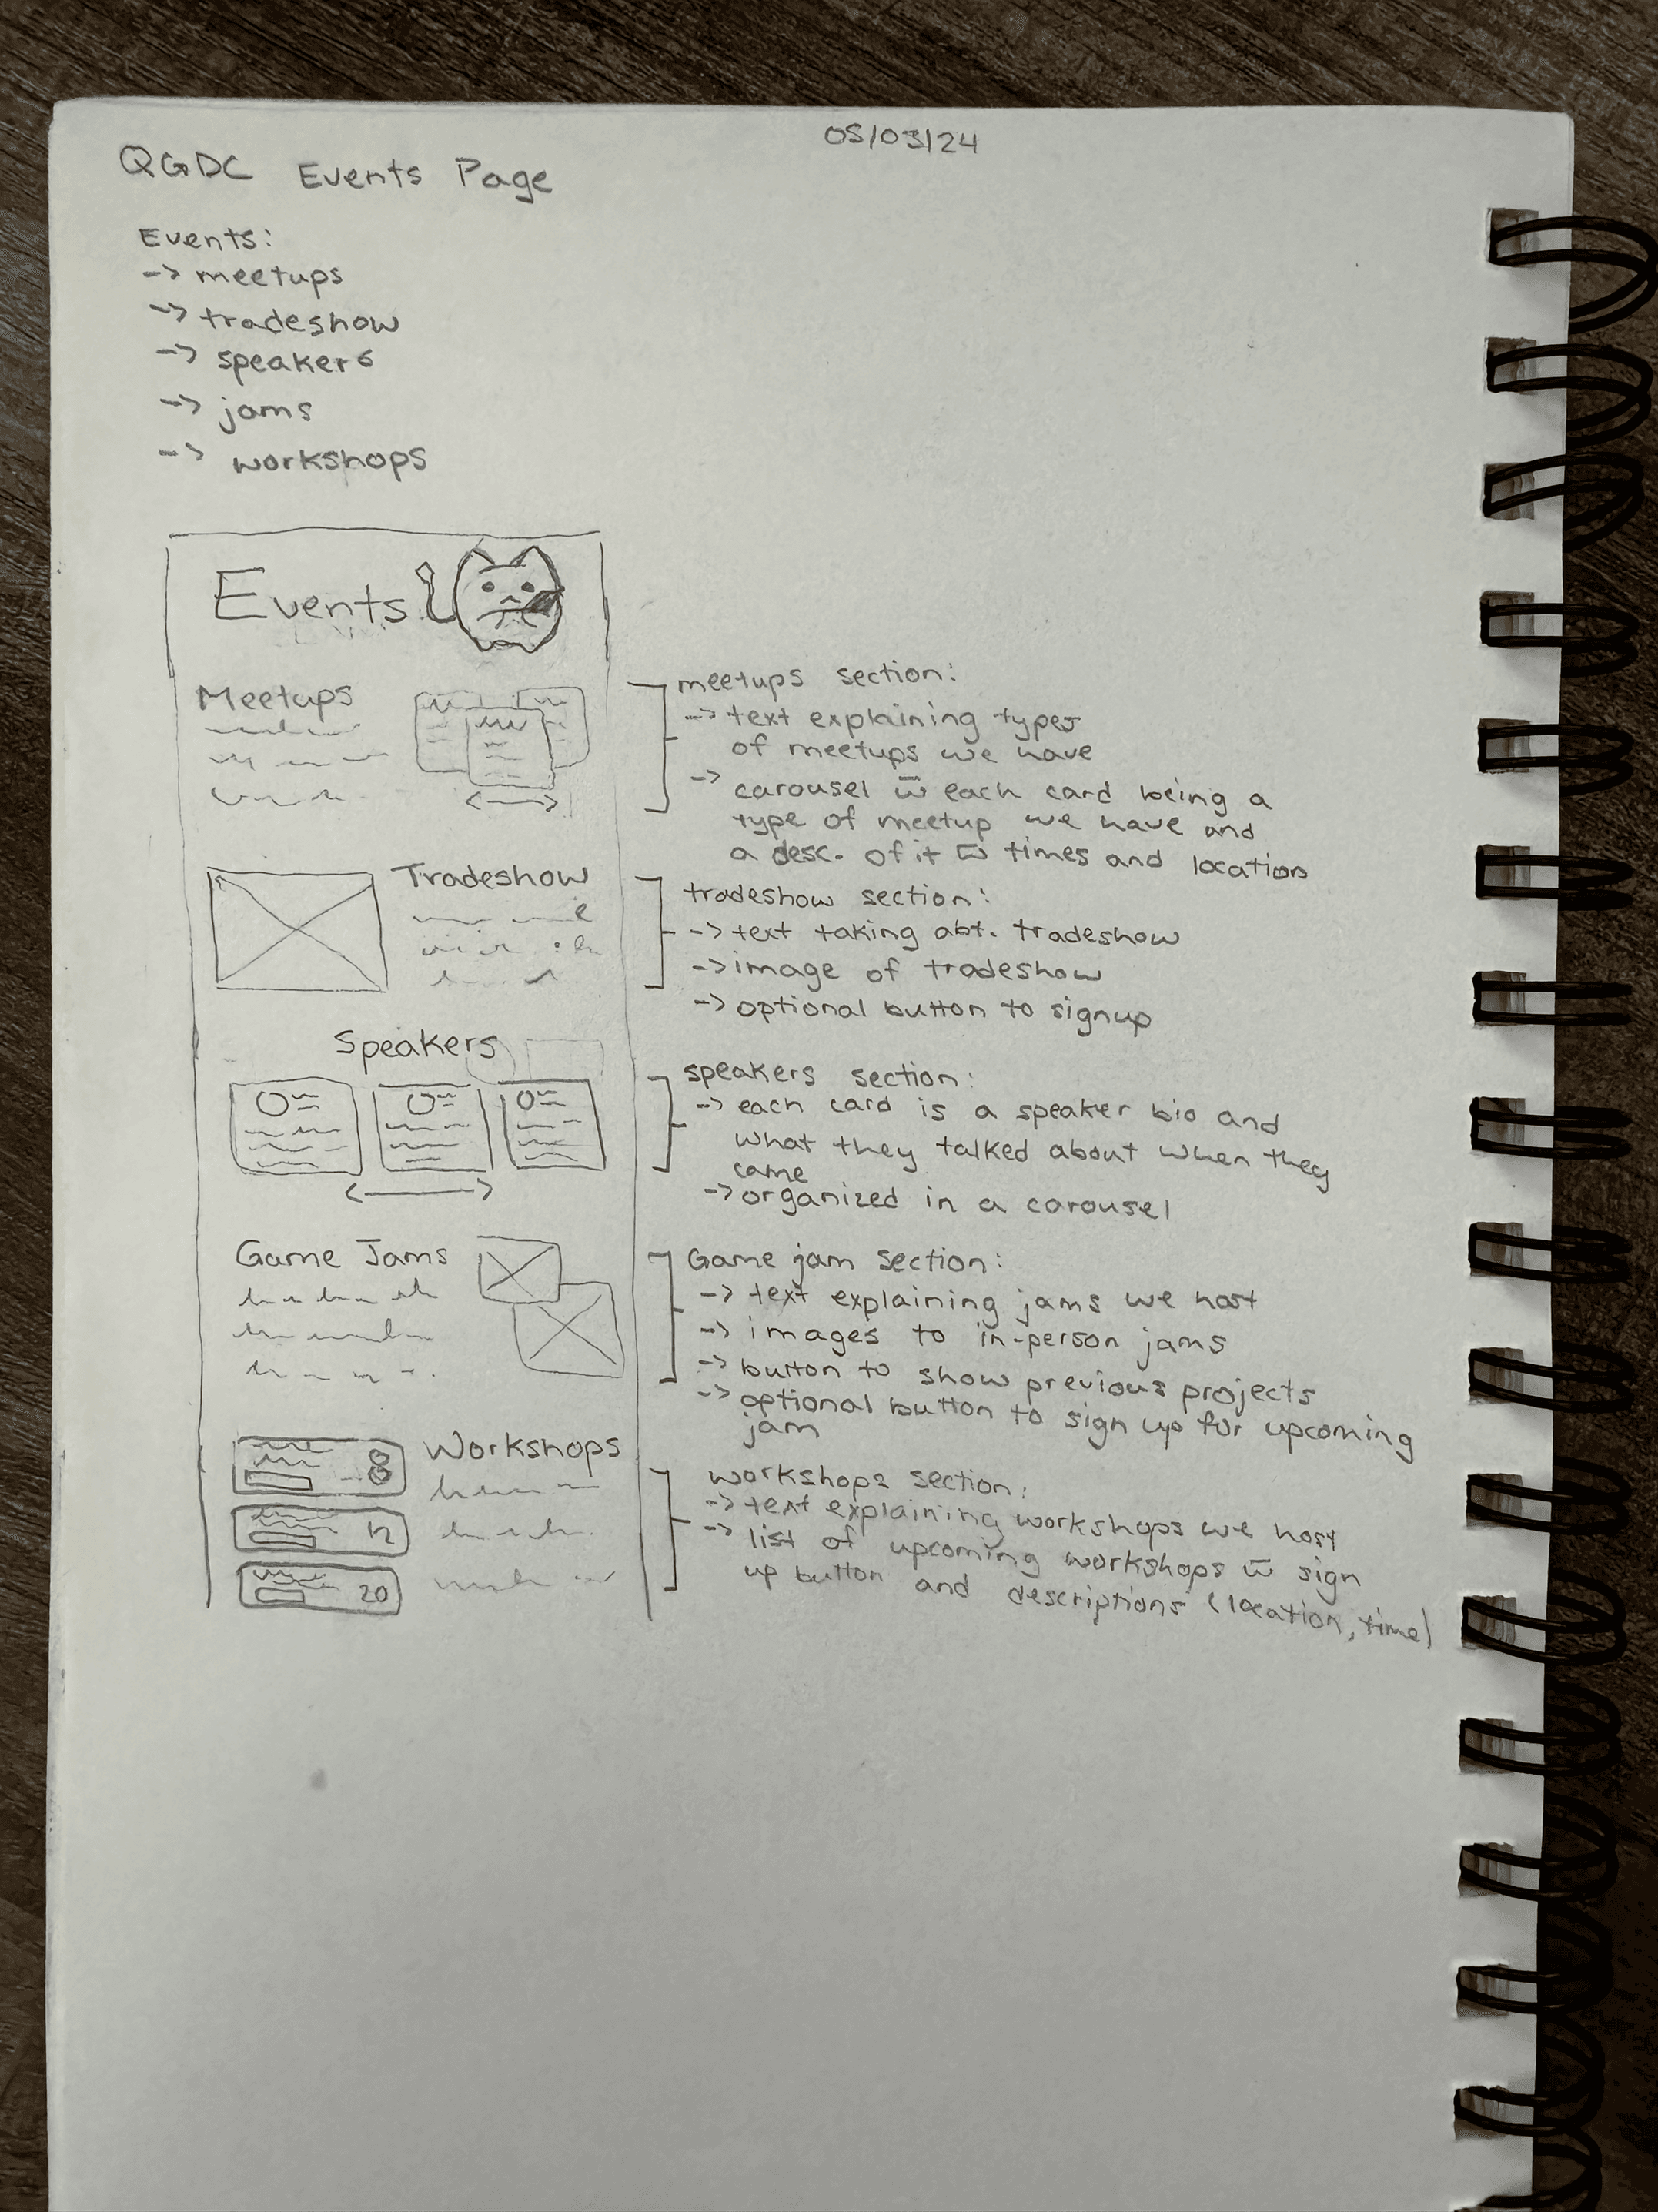 05/03/24
QGDC Events Page
Events:
-> meetups
-> tradeshow
-> speakers
-> jams
-> workshops
Events
Meetups
meetups section:
-> text explaining types
of meetups we have
-> carousel w̅ each card being a
type of meetup we have and
a desc. of it w̅ times and location
Tradeshow
tradeshow section:
-> text taking abt. tradeshow
-> image of tradeshow
-> optional button to signup
Speakers
speakers section:
-> each card is a speaker bio and
what they talked about when they
came
-> organized in a carousel
Game Jams
Game jam section:
-> text explaining jams we host
-> images to in-person jams
-> button to show previous projects
-> optional button to sign up for upcoming
jam
Workshops
8
12
20
workshops section:
-> text explaining workshops we host
-> list of upcoming workshops w̅ sign
up button and descriptions (location, time)